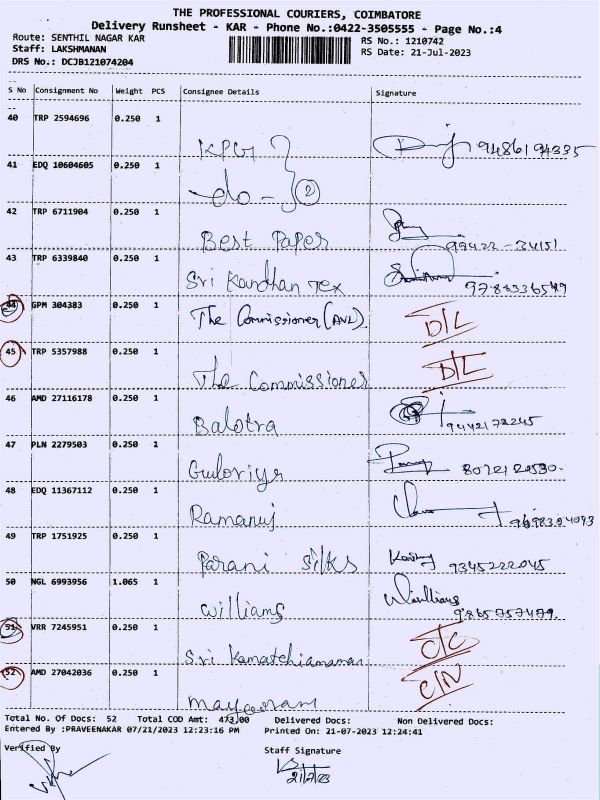 THE PROFESSIONAL COURIERS, COIMBATORE
Delivery Runsheet - KAR - Phone No.:0422-3505555 - Page No.:4
Route: SENTHIL NAGAR KAR
RS No.: 1210742
Staff: LAKSHMANAN
RS Date: 21-Jul-2023
DRS No.: DCJB121074204
S No Consignment No Weight PCS Consignee Details Signature
40 TRP 2594696 0.250 1
KPG
41 EDQ 10604605 0.250 1
do - 2
42 TRP 6711904 0.250 1
Best Paper
99422 - 34151
43 TRP 6339840 0.250 1
Sri Kandhan Tex
9788336549
44 GPM 304383 0.250 1
The Commissioner (AVL). D/L
45 TRP 5357988 0.250 1
The Commissioner D/L
46 AMD 27116178 0.250 1
Balotra 9442172245
47 PLN 2279503 0.250 1
48 EDQ 11367112 0.250 1
Ramanuj
49 TRP 1751925 0.250 1
Parani Silks 9345222045
50 NGL 6993956 1.065 1
Williams Williams
9865757479.
51 VRR 7245951 0.250 1
Sri Kamatchiamman
52 AMD 27042036 0.250 1
C/N
Total No. Of Docs: 52 Total COD Amt: 473.00 Delivered Docs: Non Delivered Docs:
Entered By :PRAVEENAKAR 07/21/2023 12:23:16 PM Printed On: 21-07-2023 12:24:41
Verified By Staff Signature
21/7/23